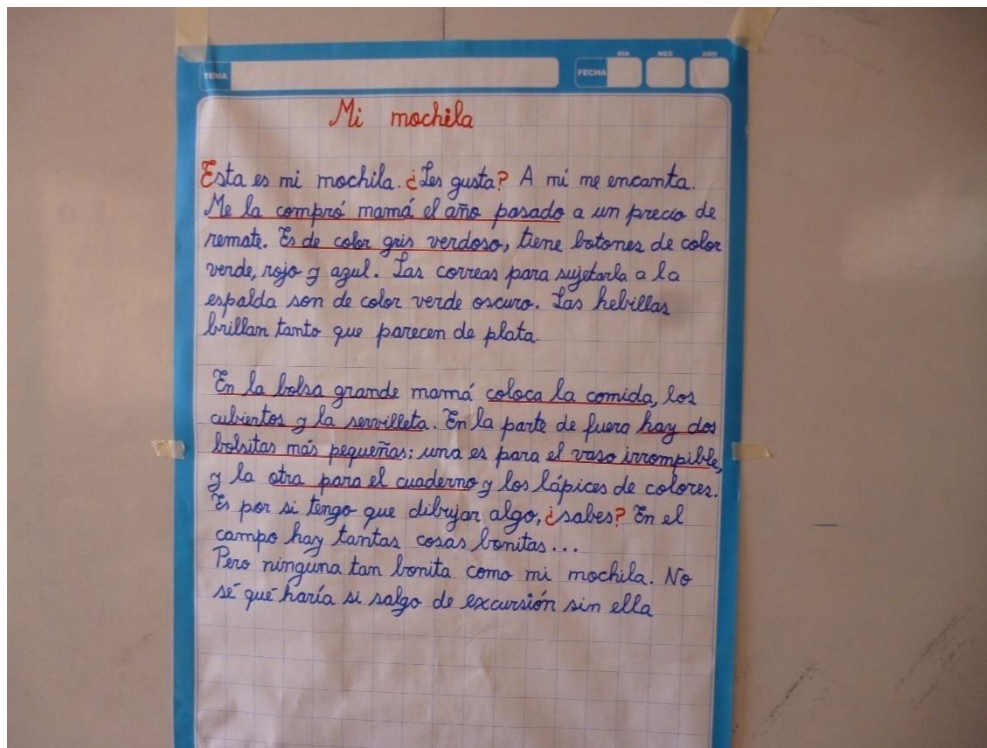 TEMA
FECHA
DÍA
MES
AÑO
Mi mochila
Esta es mi mochila. ¿Les gusta? A mí me encanta.
Me la compró mamá el año pasado a un precio de
remate. Es de color gris verdoso, tiene botones de color
verde, rojo y azul. Las correas para sujetarla a la
espalda son de color verde oscuro. Las hebillas
brillan tanto que parecen de plata.
En la bolsa grande mamá coloca la comida, los
cubiertos y la servilleta. En la parte de fuera hay dos
bolsitas más pequeñas: una es para el vaso irrompible,
y la otra para el cuaderno y los lápices de colores.
Es por si tengo que dibujar algo, ¿sabes? En el
campo hay tantas cosas bonitas...
Pero ninguna tan bonita como mi mochila. No
sé qué haría si salgo de excursión sin ella